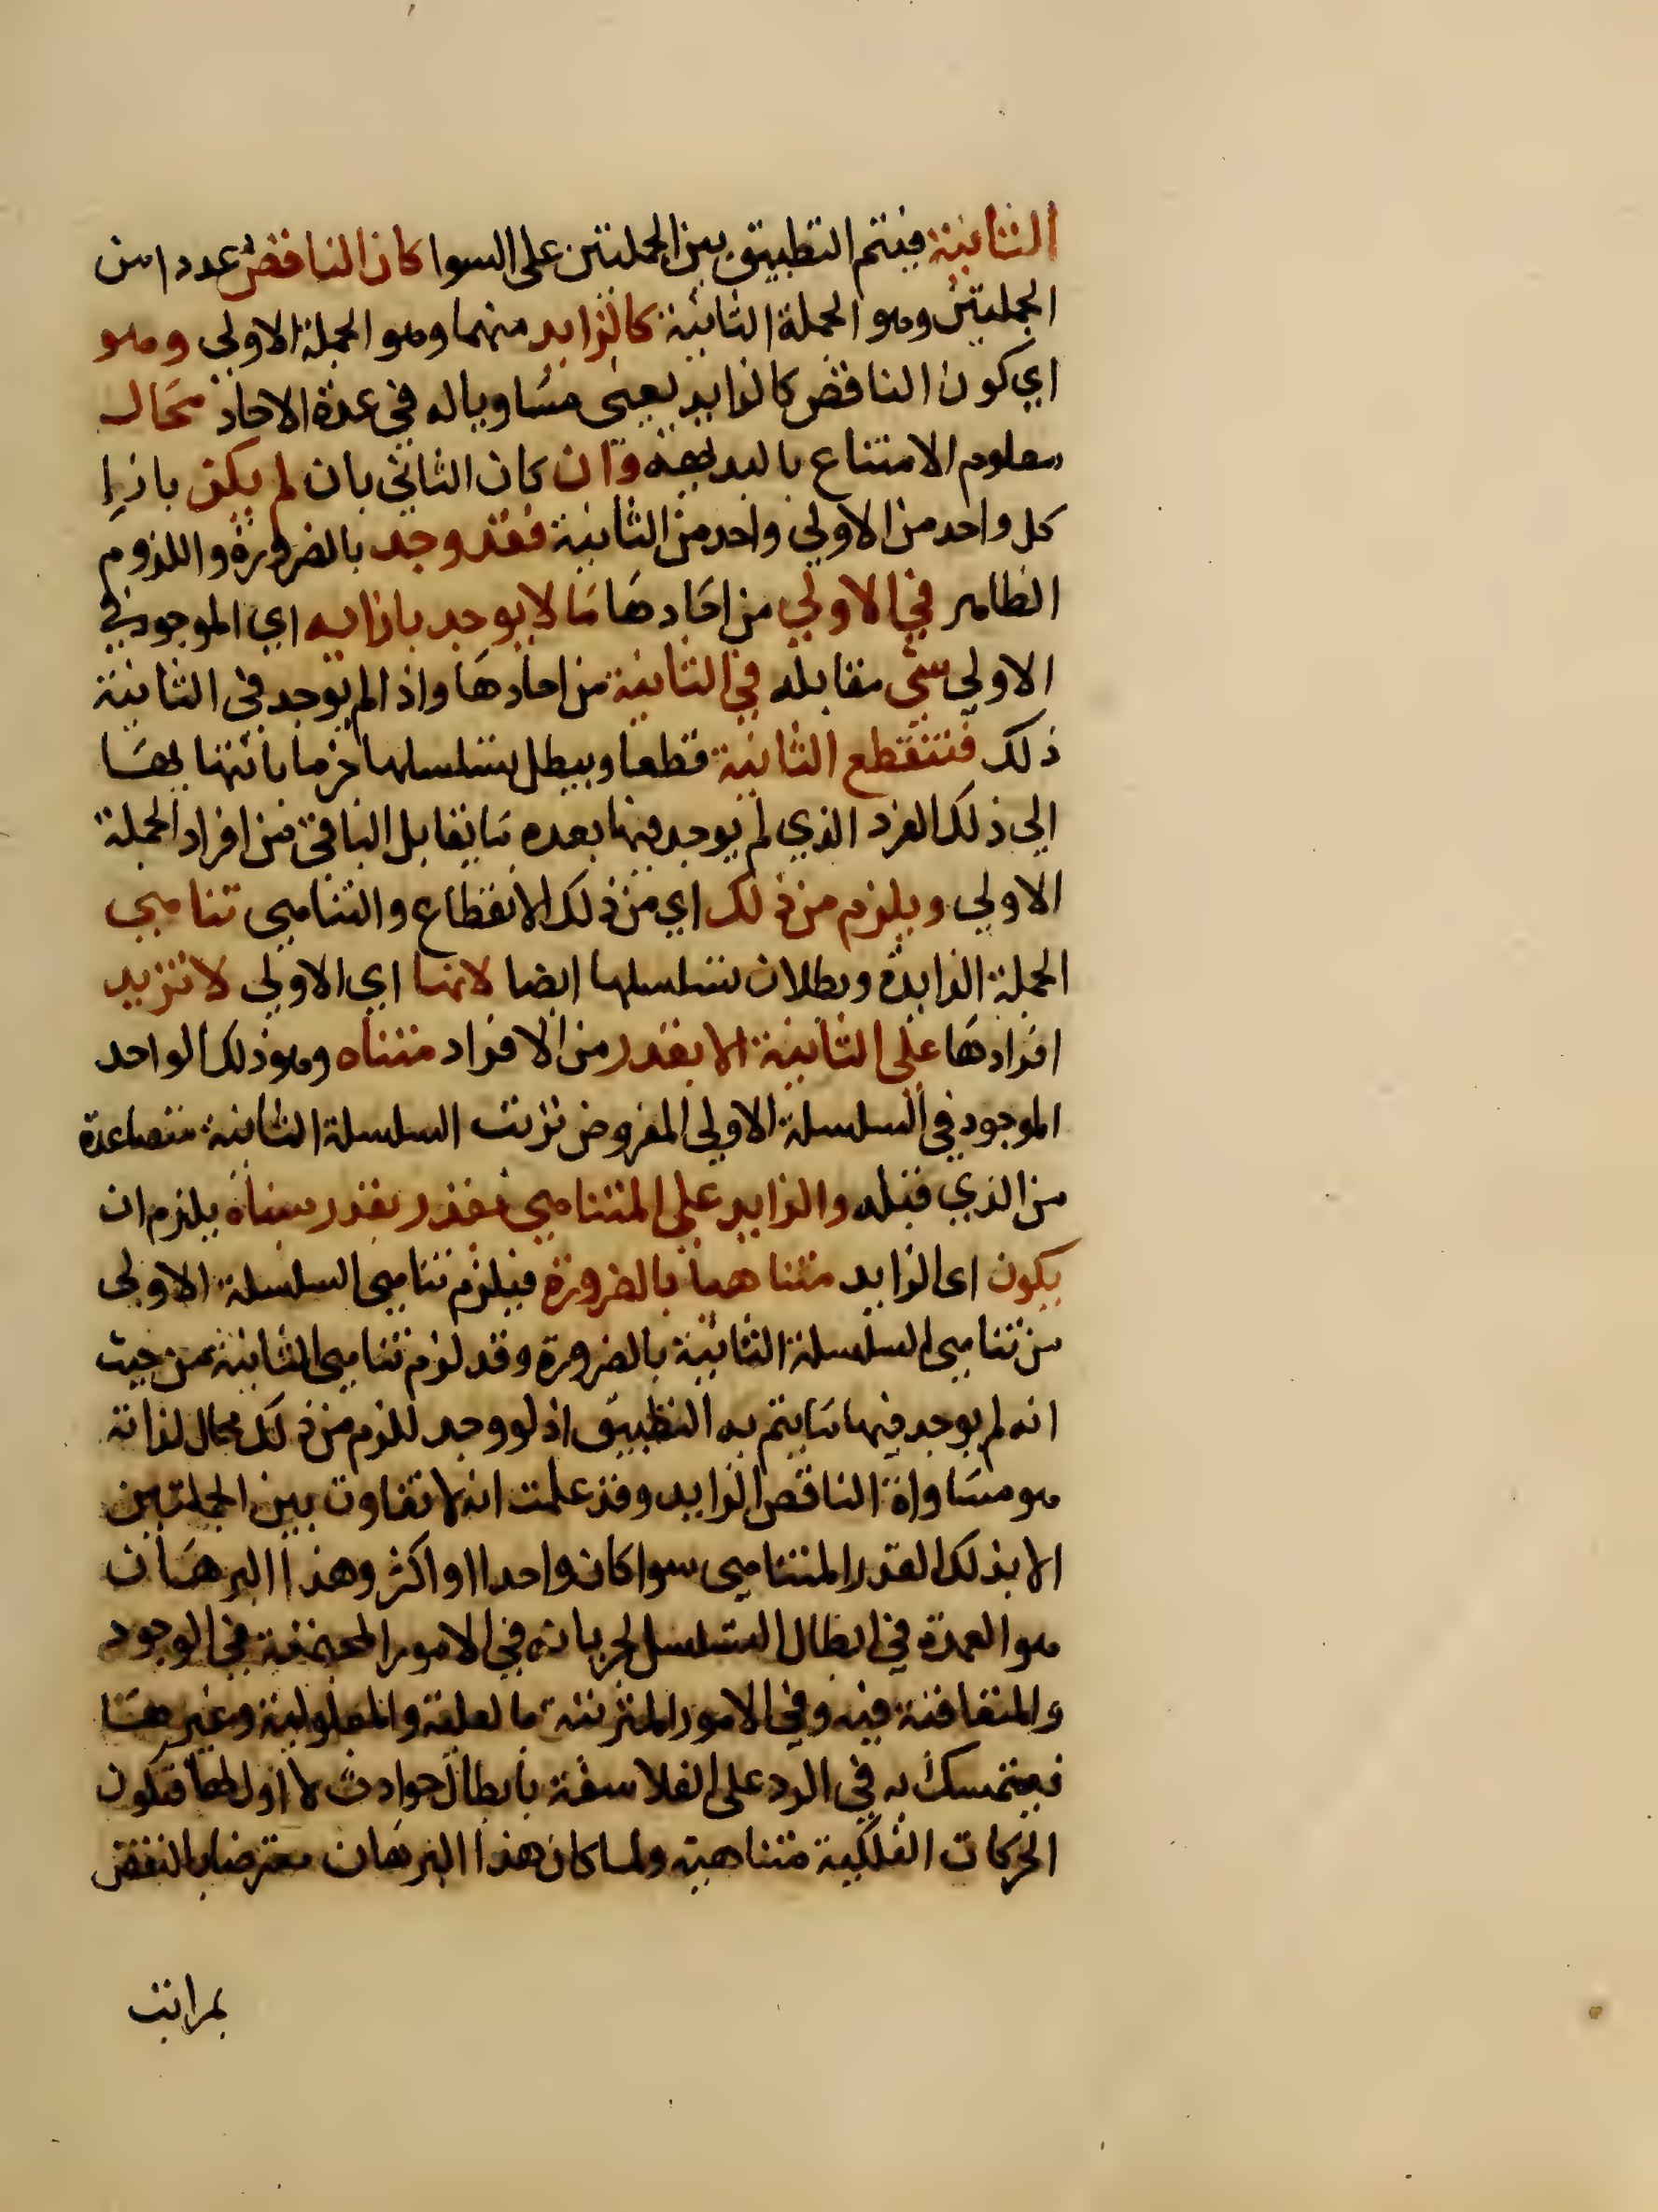 الثانية فيتم التطبيق بين الجملتين على السوا كان الناقص عددا من
الجملتين وهو الجملة الثانية كالزايد منهما وهو الجملة الاولي وهو
اي كون الناقص كالزايد يعنى مساويا له في عدة الاحاد محال
معلوم الامتناع بالبديهة وان كان الثاني بان لم يكن بازاِ
كل واحد من الاولي واحد من الثانية فقد وجد بالضرورة واللزوم
الظاهر في الاولي من احادها ما لا يوجد بازايه اي الموجود في
الاولي شي مقابله في الثانية من احادها واذا لم يوجد في الثانية
ذلك فتنقطع الثانية قطعا ويبطل تسلسلها جزما بانتهايها
الي ذلك الفرد الذي لم يوجد فيها بعده ما يقابل الباقي من افراد الجملة
الاولي ويلزم من ذلك اي من ذلك الانقطاع والتناهي تناهي
الجملة الزايدة وبطلان تسلسلها ايضا لانها اي الاولي لا تزيد
افرادها على الثانية الا بقدر من الافراد متناه وهو ذلك الواحد
الموجود في السلسلة الاولي المفروض ترتب السلسلة الثانية متصاعدة
من الذي قبله والزايد علي المتناهي بقدر بقدر متناه يلزم ان
يكون اى الزايد متناهيا بالضرورة فيلزم تناهى السلسلة الاولى
من تناهى السلسلة الثانية بالضرورة وقد لزم تناهى الثانية من حيث
انه لم يوجد فيها ما يتم به التطبيق اذ لو وجد للزم من ذلك محال لذاته
هو مساواة الناقص الزايد وقد علمت انه لا تفاوت بين الجملتين
الا بذلك القدر المتناهى سوا كان واحدا او اكثر وهذا البرهان
هو العمدة في ابطال التسلسل لجريانه في الامور المجتمعة في الوجود
والمتعاقبة فيه وفي الامور المترتبة بالعلية والمعلولية وغيرها
فيتمسك به في الرد على الفلاسفة بابطال حوادث لا اول لها فتكون
الحركات الفلكية متناهية ولما كان هذا البرهان معترضا بالنقض
بمراتب